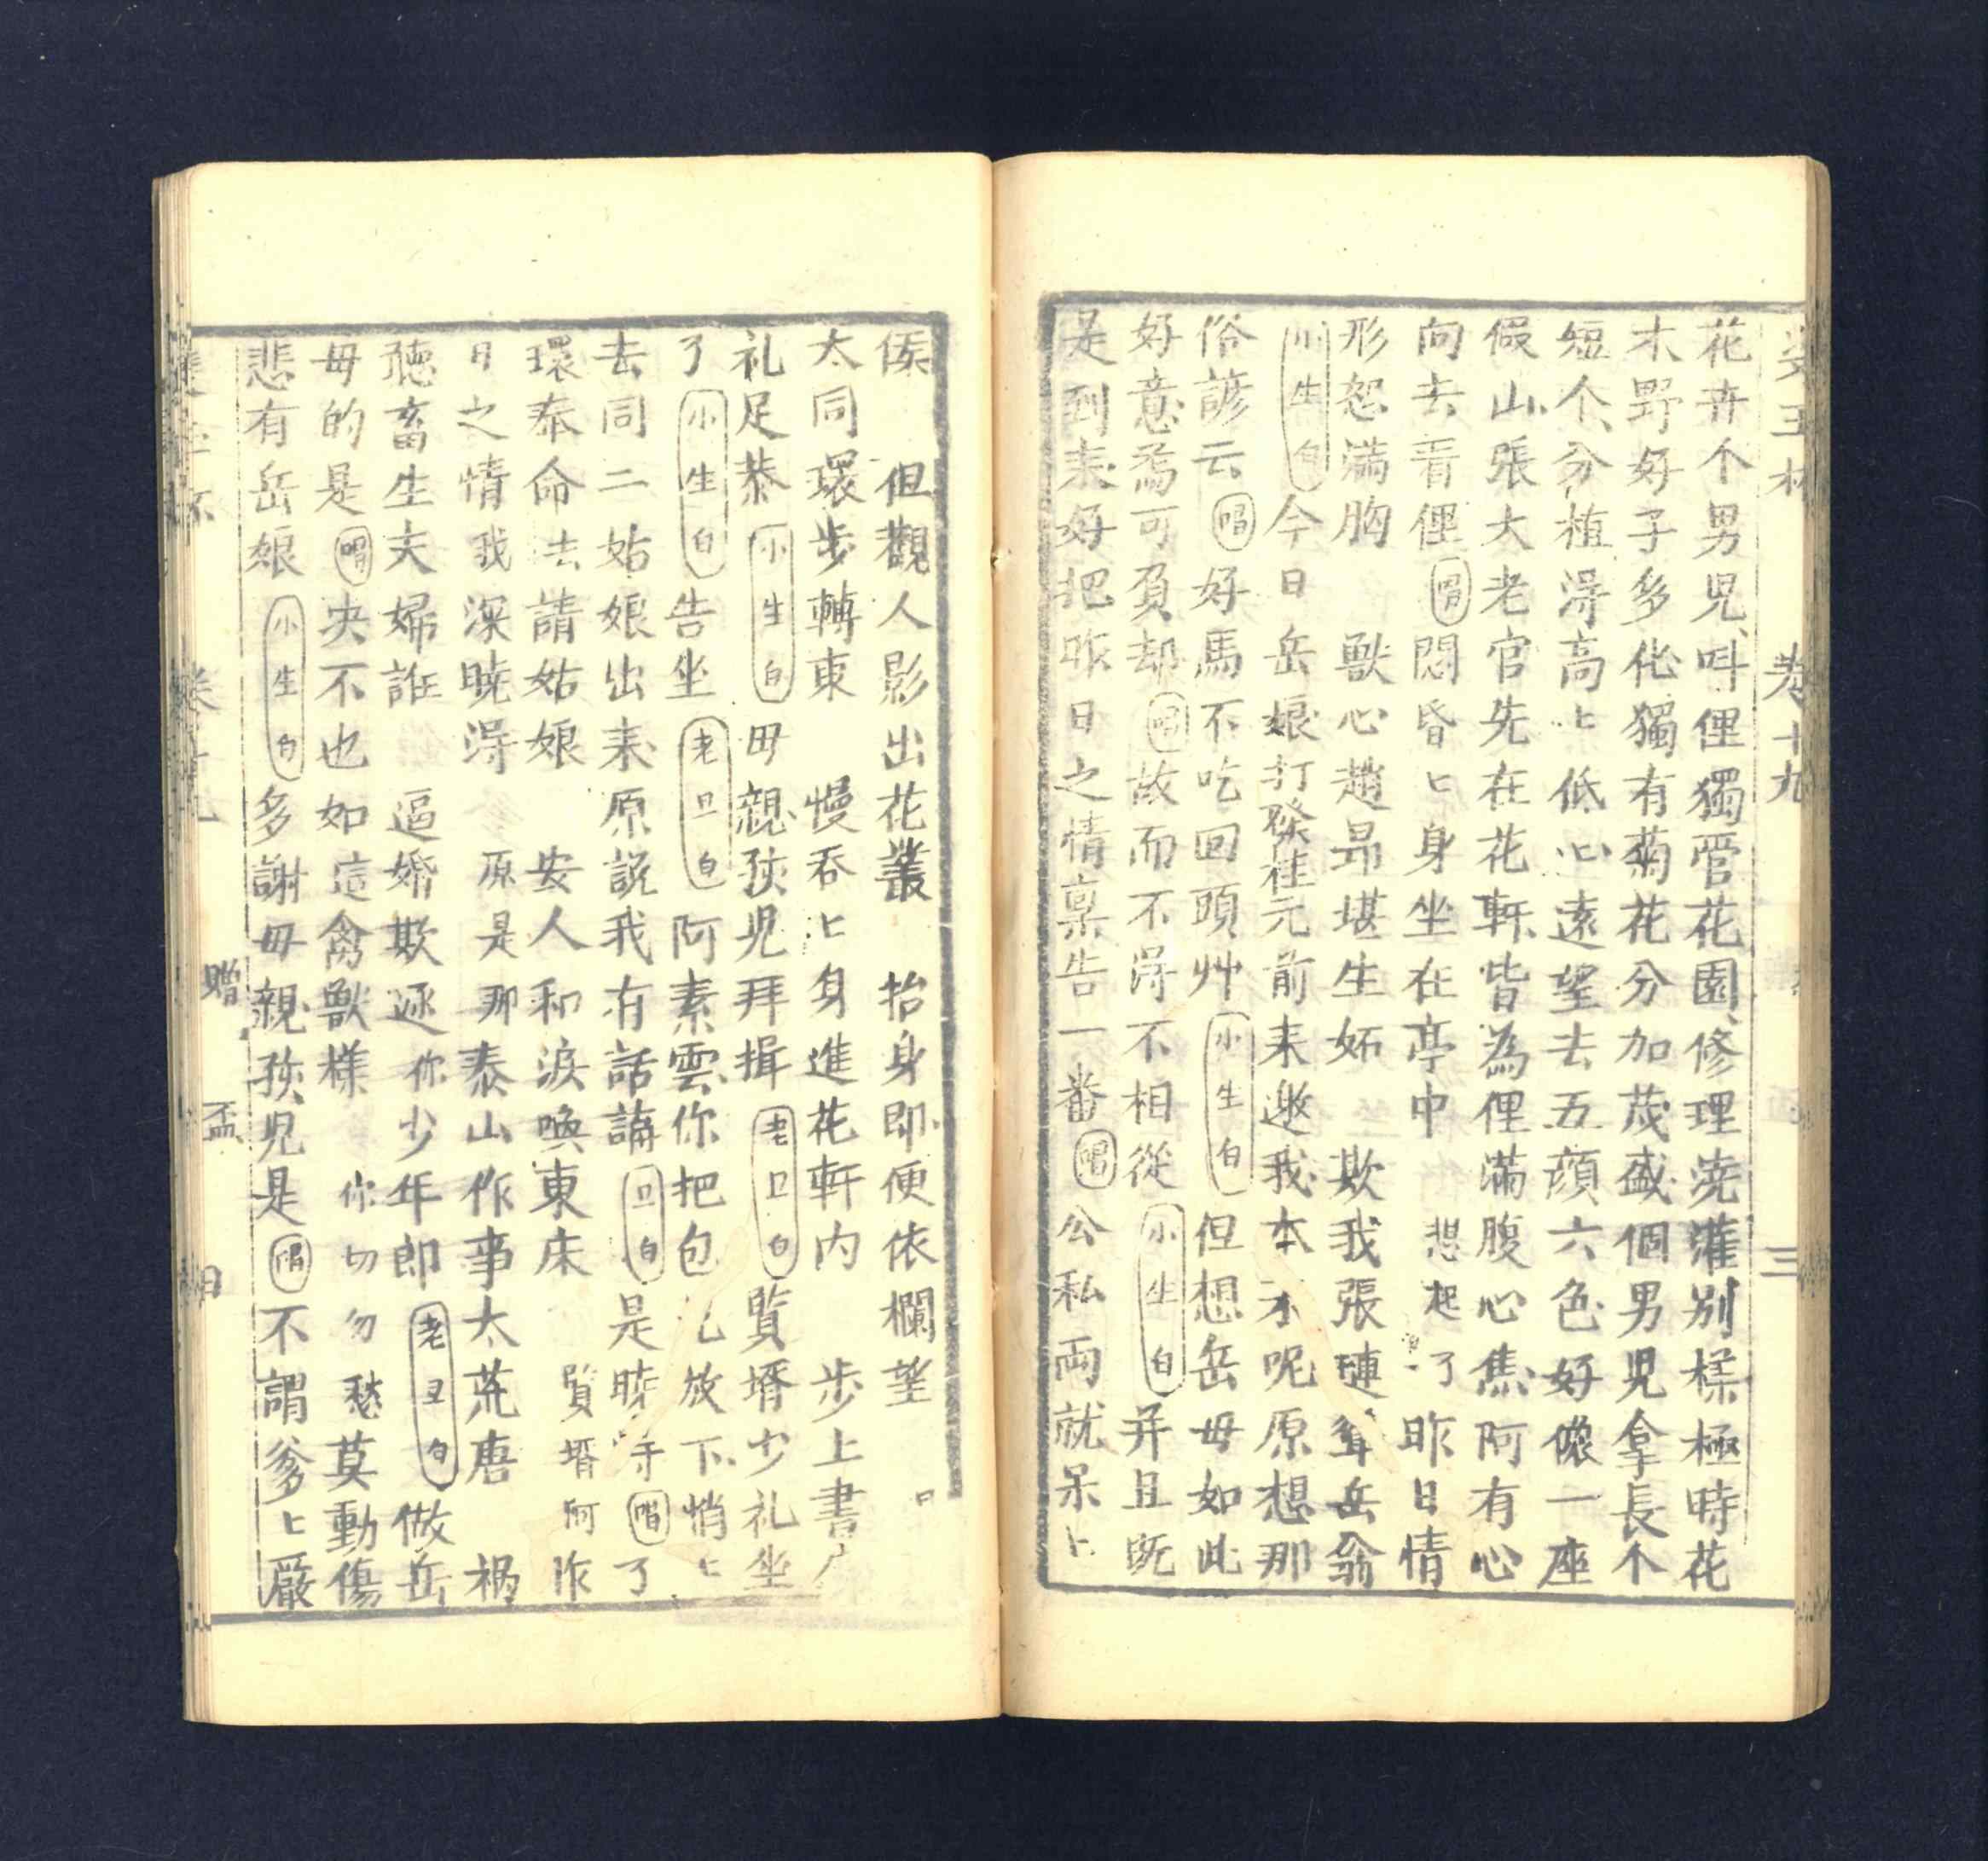 卷十九
三
花卉个男児叫俚獨管花園修理澆灌別樣極時花
木野好子多化獨有菊花分加茂盛個男児拿長个
短个分植淂高〻低〻遠望去五顔六色好像一座
假山張大老官先在花軒皆為俚滿腹心焦阿有心
向去看俚唱悶昏〻身坐在亭中 想起了昨日情
形怨滿胸 獸心趙昴堪生妬 欺我張璉聳岳翁
小生白今日岳娘打發桂元前来邀我本不呢原想那
俗諺云唱好馬不吃回頭艸小生白但想岳毋如此
好意焉可負却唱故而不淂不相從小生白并且既
是到来好把昨日之情稟告一番唱公私両就呆〻
但觀人影出花叢 抬身即便依欄望
太同環步轉東 慢吞〻身進花軒内 步上書
礼足恭小生白毋親孩児拜揖老旦白賢壻少礼坐
了小生白告坐老旦白阿素雲你把包 放下悄〻
去同二姑娘出来原説我有話講旦白是曉淂唱了
環奉命去請姑娘 安人和淚喚東床 賢壻阿昨
日之情我深曉淂 原是那泰山作事太荒唐 禍
聽畜生夫婦誰 逼婚欺逐你少年郎老旦白做岳
毋的是唱央不也如這禽獸樣 你切勿愁莫動傷
悲有岳娘小生白多謝毋親孩児是唱不謂爹〻嚴
贈盃